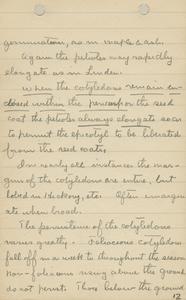 germination, as in maple & ash.
Again the petioles may rapidly
elongate as in Linden.
When the cotyledons remain en-
closed within the pericarp or the seed
coat the petioles always elongate so as
to permit the epicotyl to be liberated
from the seed coats.
In nearly all instances the mar-
gins of the cotyledons are entire, but
lobed in Hickory, etc. Often emargin-
ate when broad.
The persistence of the cotyledons
varies greatly. Foliaceous cotyledons
fall off in a week to throughout the season
non-foliaceous rising above the ground
do not persist. Those below the ground
12